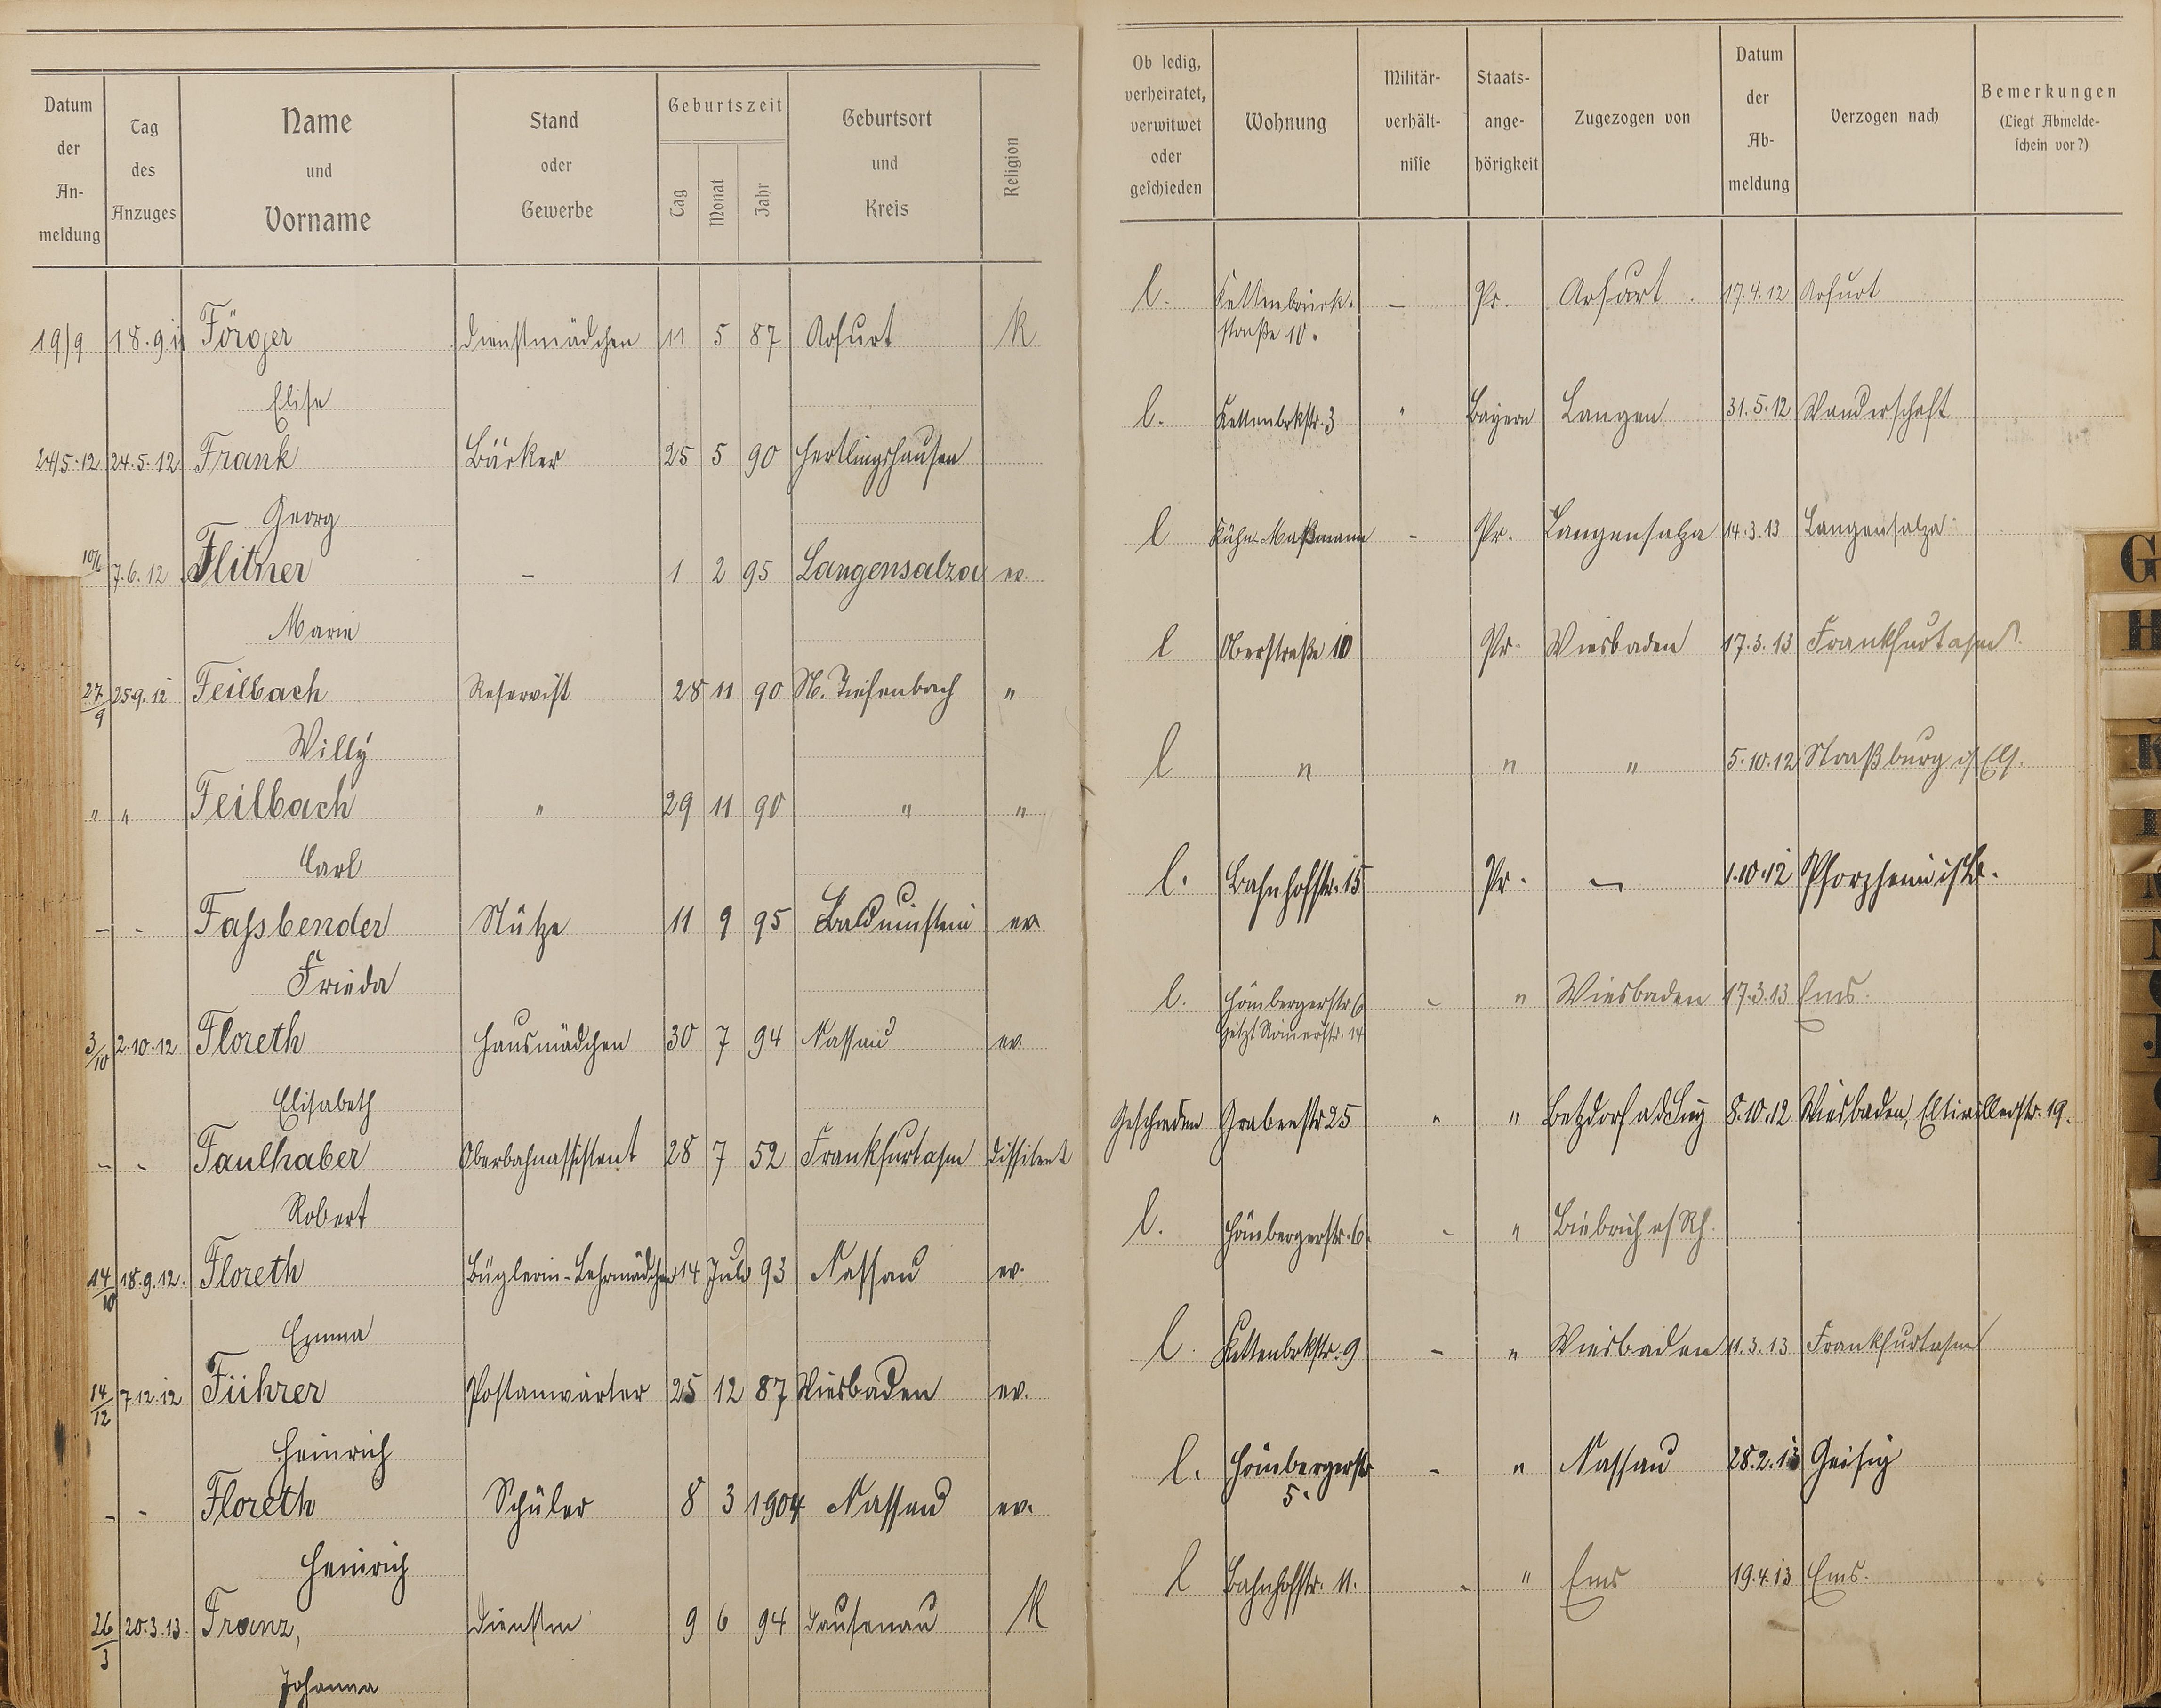 Datum der An-meldung
Tag des Anzuges
Name und Vorname
Stand oder Gewerbe
Geburtszeit
Tag Monat Jahr
Geburtsort und Kreis
Religion
Ob ledig, verheiratet, verwitwet oder geschieden
Wohnung
Militär-verhält-nisse
Staats-ange-hörigkeit
Zugezogen von
Datum der Ab-meldung
Verzogen nach
Bemerkungen
(Liegt Abmelde-schein vor?)
19/9 18.9.11 Förger Dienstmädchen 11 5 87 Arfurt K
Elise
l. Kettenbrück. — Pr. Arfurt. 17.4.12 Arfurt
straße 10.
24/5.12 24.5.12 Frank Bäcker 25 5 90 Hertlingshausen
Georg
l. Kettenbrkstr. 3 " Bayern Langen 31.5.12 Wanderschaft
10/6 7.6.12 Flitner — 1 2 95 Langensalza ev.
Marie
l Kühn-Maßmann - Pr. Langensalza 14.3.13 Langensalza
27/9 25.9.12 Feilbach Reservist 28 11 90 N. Tiefenbach "
Willy
l Oberstraße 10 Pr. Wiesbaden 17.3.13 Frankfurt a/m
" " Feilbach " 29 11 90 " "
Carl
l " " " 5.10.12 Straßburg i/Els.
- - Fassbender Stütze 11 9 95 Balduinstein ev
Frieda
l. Bahnhofstr. 15 Pr. - 1.10.12 Pforzheim i/B.
3/10 2.10.12 Floreth Hausmädchen 30 7 94 Nassau ev.
Elisabeth
l. Hömbergerstr. 6 - " Wiesbaden 17.3.13 Ems.
jetzt Römerstr. 14
- - Faulhaber Oberbahnassistent 28 7 52 Frankfurt a/m Dissitent
Robert
Geschieden Grabenstr 25 " " Betzdorf a d Sieg 8.10.12 Wiesbaden, Eltvillerstr. 19.
14/10 18.9.12. Floreth Büglerin-Lehrmädchen 14 Juli 93 Nassau ev.
Emma
l. Hömbergerstr. 6. - " Biebrich a/Rh.
14/12 7.12.12 Führer Postanwärter 25 12 87 Wiesbaden ev.
Heinrich
l. Kettenbrkstr. 9 - " Wiesbaden 11.3.13 Frankfurt a/m
- - Floreth Schüler 8 3 1904 Nassau ev.
Heinrich
l. Hömbergerstr - " Nassau 28.2.13 Geisig
5.
26/3 20.3.13. Franz, Dienstm 9 6 94 Dausenau K
Johanna
l Bahnhofstr. 11. - " Ems 19.4.13 Ems.
G
H
K